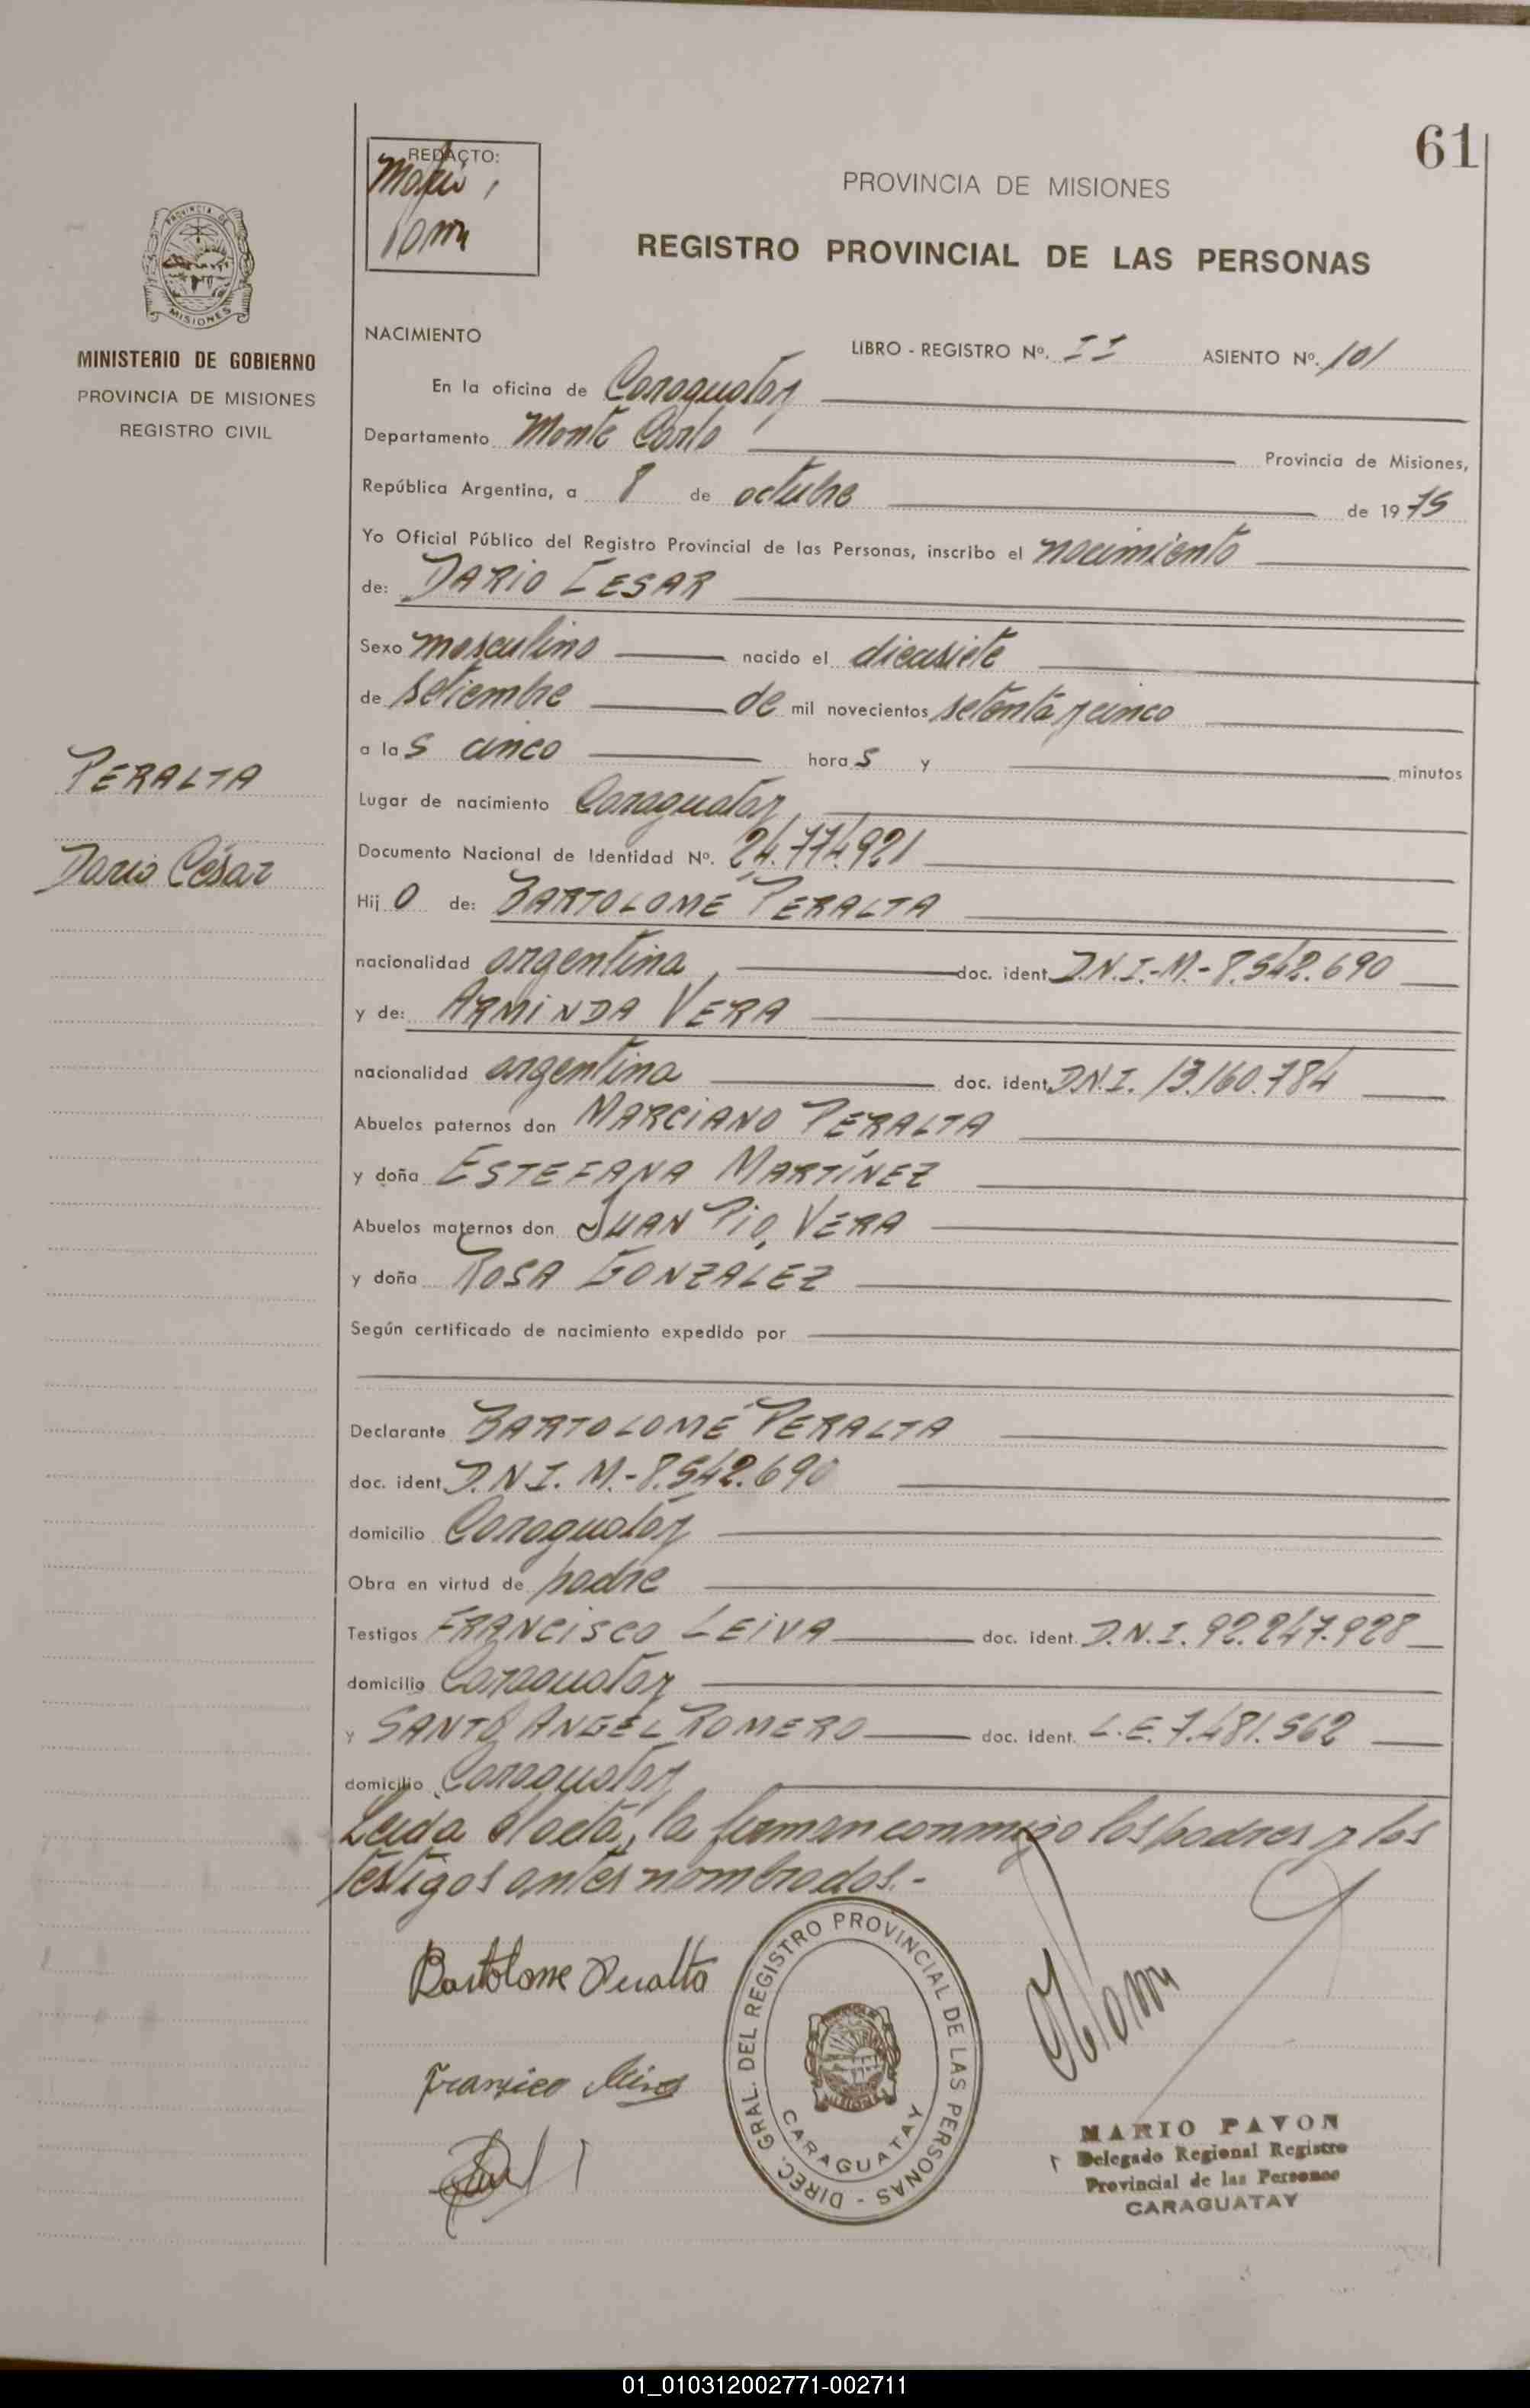 61
REDACTO:
PROVINCIA DE MISIONES
REGISTRO PROVINCIAL DE LAS PERSONAS
PROVINCIA DE
MISIONES
MINISTERIO DE GOBIERNO
PROVINCIA DE MISIONES
REGISTRO CIVIL
NACIMIENTO
LIBRO - REGISTRO Nº. II ASIENTO Nº. 101
En la oficina de Caraguatay
Departamento Monte Carlo Provincia de Misiones,
República Argentina, a 8 de octubre de 1975
Yo Oficial Público del Registro Provincial de las Personas, inscribo el nacimiento
de: DARIO CESAR
Sexo masculino nacido el diecisiete
de setiembre de mil novecientos setenta y cinco
a las cinco horas y minutos
PERALTA
Lugar de nacimiento Caraguatay
Documento Nacional de Identidad Nº. 24.774.921
Dario César
Hijo de: BARTOLOMÉ PERALTA
nacionalidad argentina, doc. ident. D.N.I.-M.-8.542.690
y de: ARMINDA VERA
nacionalidad argentina doc. ident. D.N.I. 13.160.784
Abuelos paternos don MARCIANO PERALTA
y doña ESTEFANA MARTÍNEZ
Abuelos maternos don JUAN PIO VERA
y doña ROSA GONZALEZ
Según certificado de nacimiento expedido por
Declarante BARTOLOMÉ PERALTA
doc. ident. D.N.I. M.-8.542.690
domicilio Caraguatay
Obra en virtud de padre
Testigos FRANCISCO LEIVA doc. ident. D.N.I. 92.247.928
domicilio Caraguatay
y SANTO ANGEL ROMERO doc. ident. L.E. 7.481.562
domicilio Caraguatay
Leida el acta, la firman conmigo los padres y los
testigos antes nombrados.-
Bartolome Peralta
DIREC. GRAL. DEL REGISTRO PROVINCIAL DE LAS PERSONAS -
CARAGUATAY
MARIO PAVON
Delegado Regional Registro
Provincial de las Personas
CARAGUATAY
01_010312002771-002711